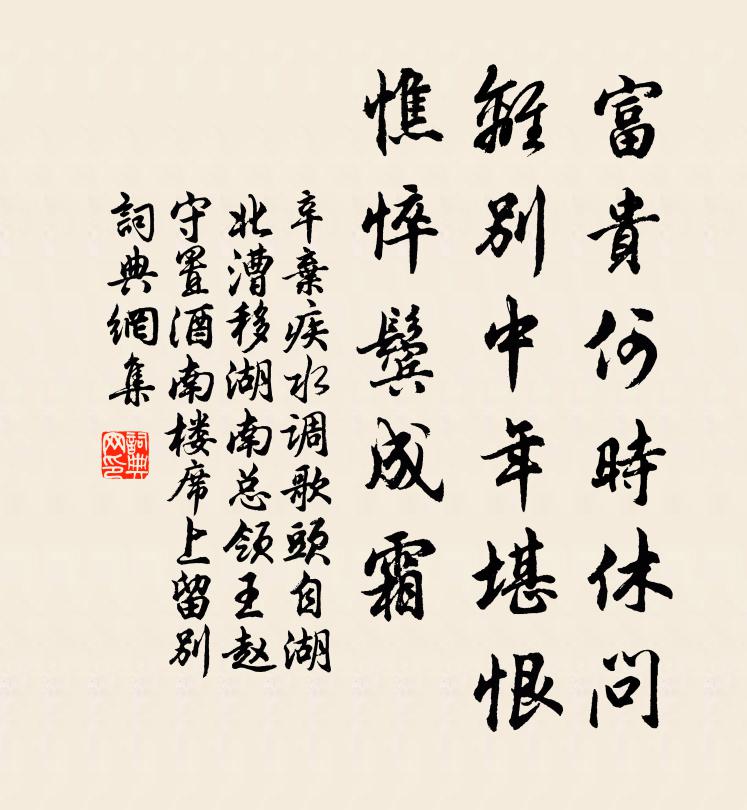 富貴何時休問
離別中年堪恨
憔悴鬓成霜
辛棄疾水调歌頭自湖
北漕移湖南总领王赵
守置酒南楼席上留别
詞典網集
詞典网印